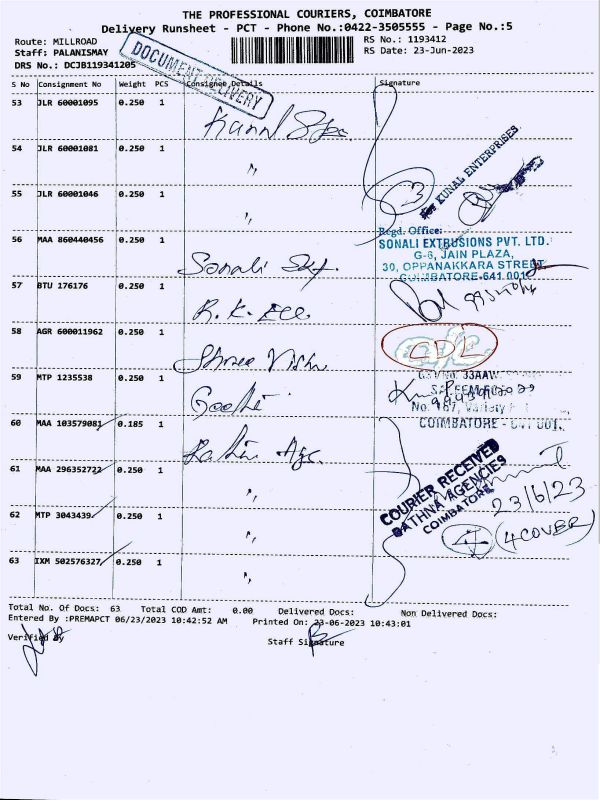 THE PROFESSIONAL COURIERS, COIMBATORE
Delivery Runsheet - PCT - Phone No.:0422-3505555 - Page No.:5
Route: MILLROAD
RS No.: 1193412
Staff: PALANISMAY
RS Date: 23-Jun-2023
DRS No.: DCJB119341205
DOCUMENT DELIVERY
S No Consignment No Weight PCS Consignee Details Signature
53 JLR 60001095 0.250 1
54 JLR 60001081 0.250 1 "
KUNAL ENTERPRISES
3
55 JLR 60001046 0.250 1 "
Regd. Office:
SONALI EXTRUSIONS PVT. LTD.
G-6, JAIN PLAZA,
30, OPPANAKKARA STREET
COIMBATORE-641 001
56 MAA 860440456 0.250 1 Sonali
57 BTU 176176 0.250 1 R.K. Ele
58 AGR 600011962 0.250 1 Shree Vishu
CDL
59 MTP 1235538 0.250 1
No. 167, Variety
COIMBATORE - 641 001.
60 MAA 103579081 0.185 1
61 MAA 296352722 0.250 1 "
COURIER RECEIVED
RATHNA AGENCIES
COIMBATORE
23/6/23
62 MTP 3043439 0.250 1 "
4 (4 COVER)
63 IXM 502576327 0.250 1 "
Total No. Of Docs: 63 Total COD Amt: 0.00 Delivered Docs: Non Delivered Docs:
Entered By :PREMAPCT 06/23/2023 10:42:52 AM Printed On: 23-06-2023 10:43:01
Verified By Staff Signature